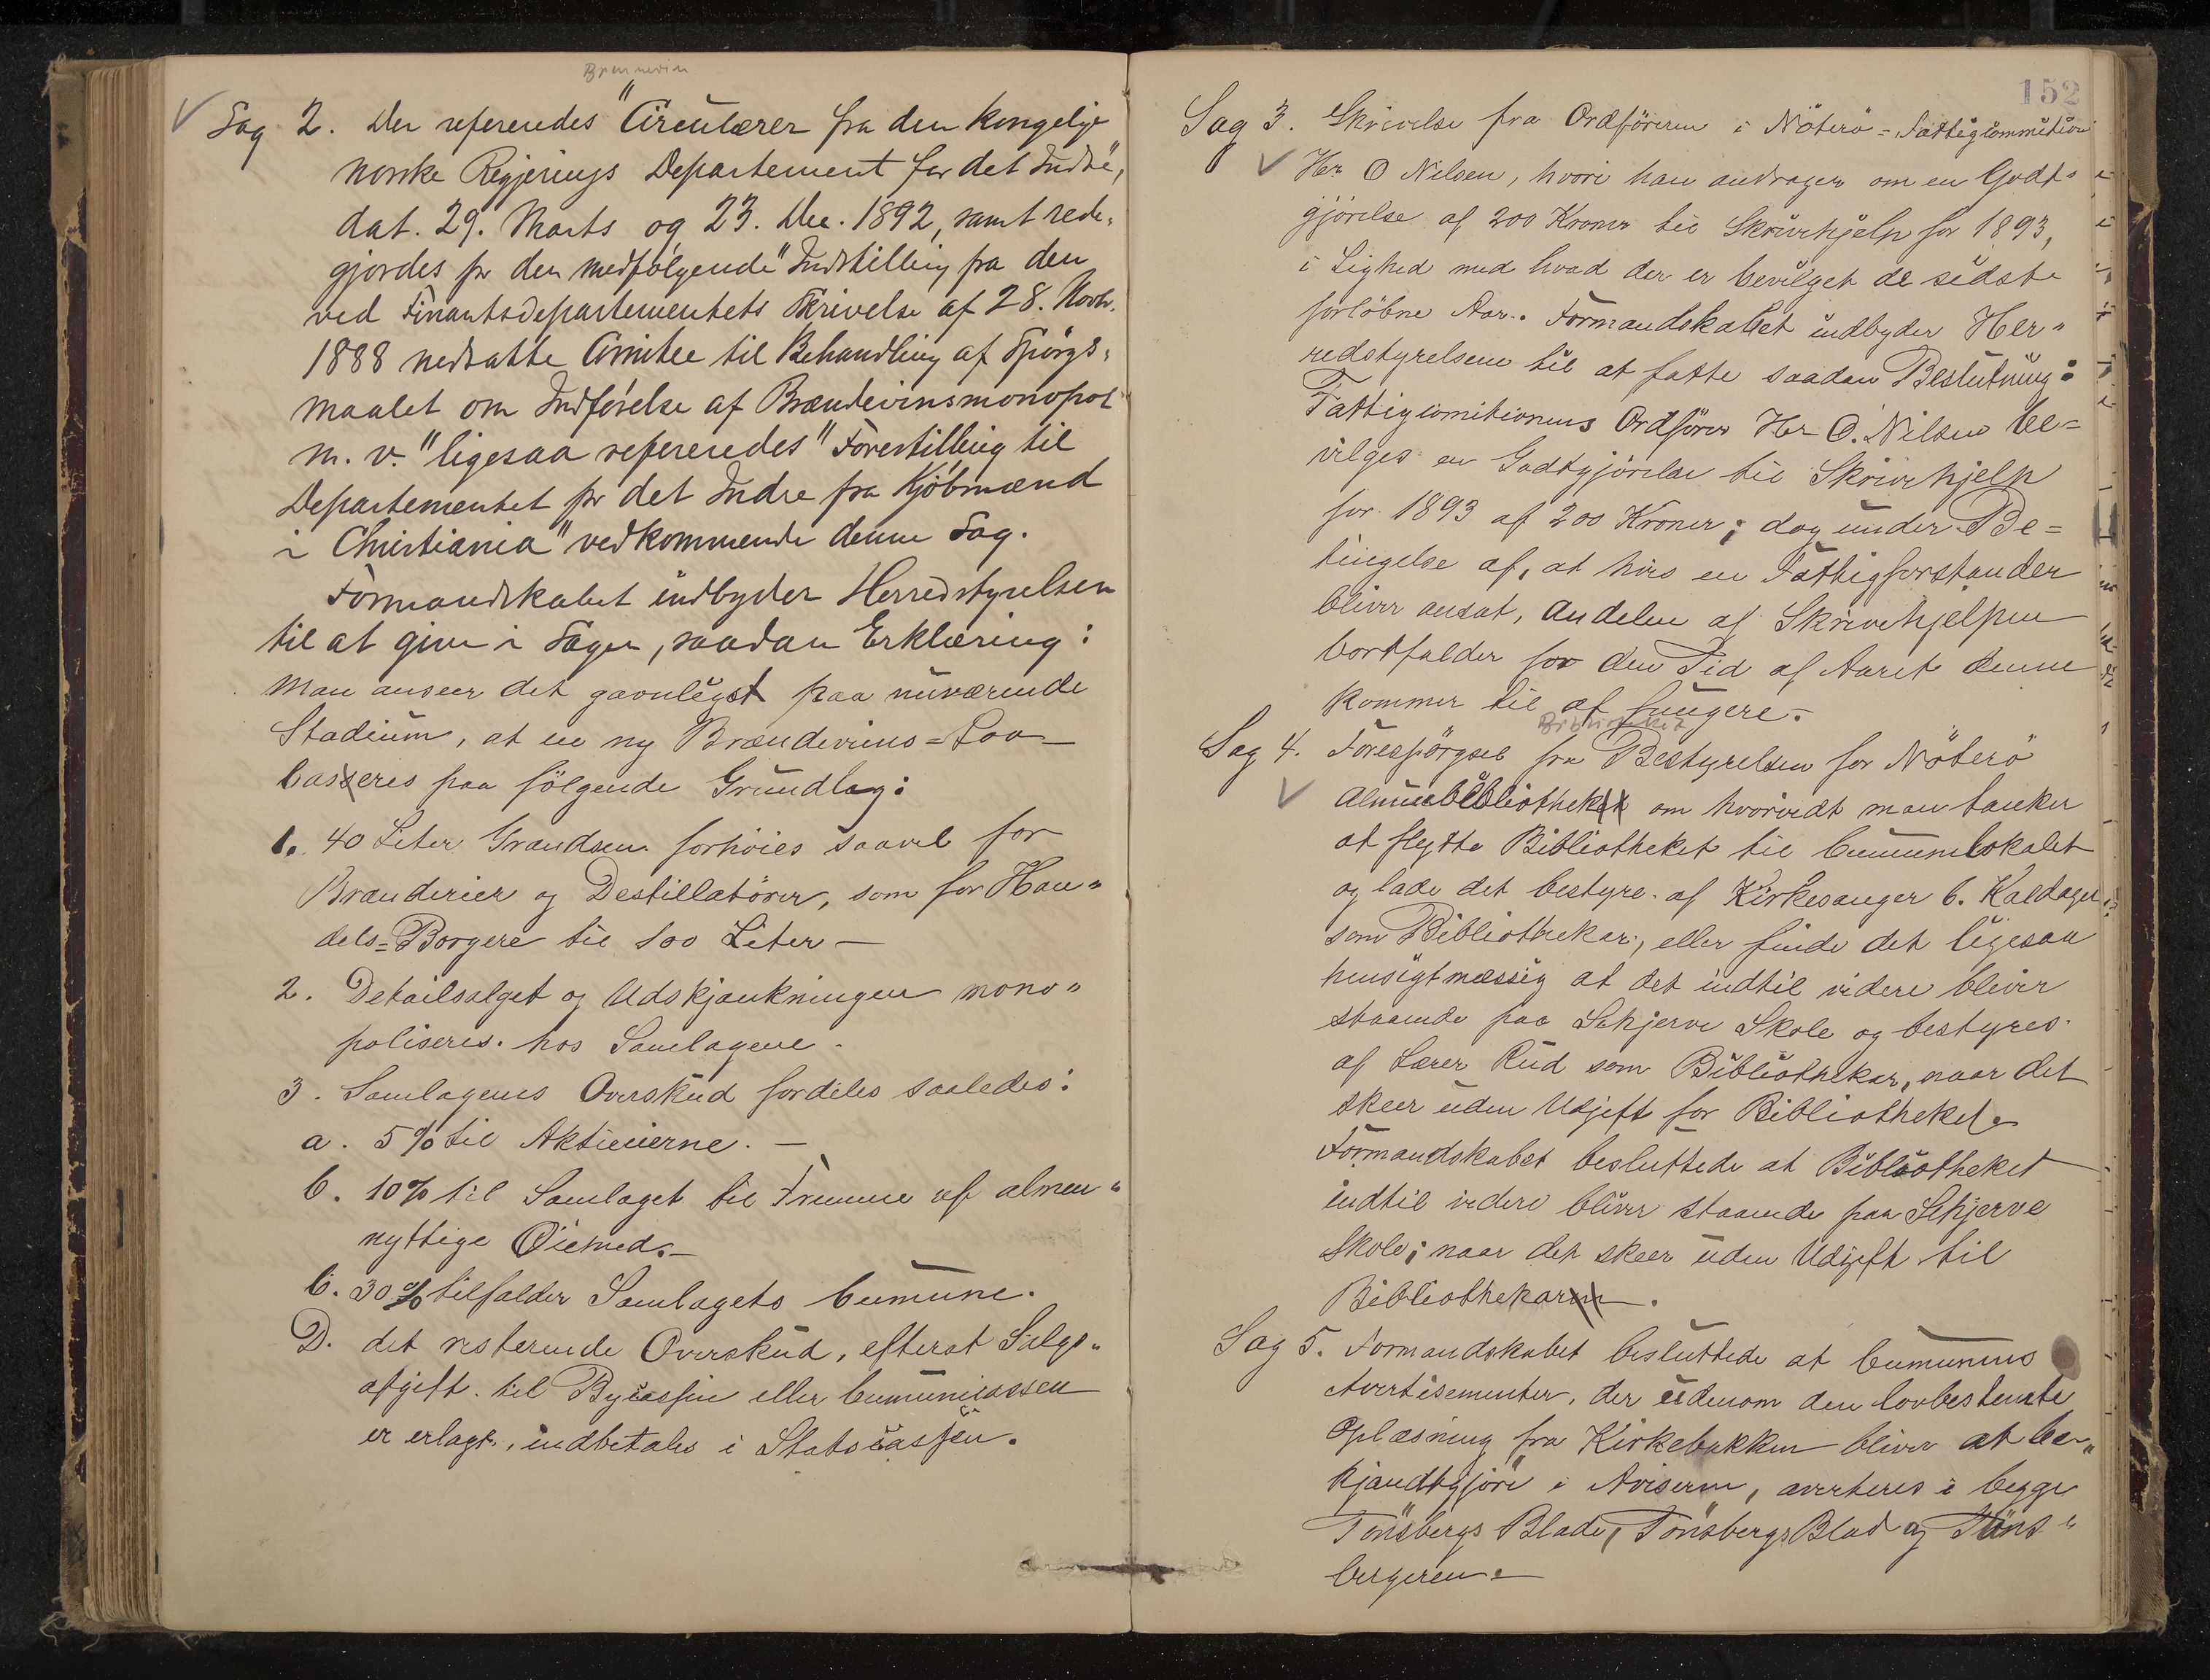 Brennevin
Sag 2. Der refereredes "Circulærer fra den kongelige
norske Regjerings Departement for det Indre",
dat. 29. Marts og 23. Dec. 1892, samt rede-
gjordes for den medfølgende "Indstilling fra den
ved Finantsdepartementets Skrivelse af 28. Novbr.
1888 nedsatte Comitee til Behandling af Spörgs-
maalet om Indførelse af Brændevinsmonopol
m. v." ligesaa refereredes "Forestilling til
Departementet for det Indre fra Kjöbmænd
i Christiania" vedkommende denne Sag.
Formandskabet indbyder Herredstyrelsen
til at give i Sagen, saadan Erklæring:
Man anseer det gavnligst paa nuværende
Stadium, at en ny Brændevins=Lov
baseres paa fölgende Grundlag:
1. 40 Liter Grændsen forhöies saavel for
Brænderier og Destillatörer, som for Han-
dels=Borgere til 100 Liter —
2. Detailsalget og Udskjænkningen mono-
poliseres hos Samlagene.
3. Samlagenes Overskud fordeles saaledes:
a. 5% til Aktieeierne. —
b. 10% til Samlaget til Fremme af almen-
nyttige Öiemed. —
C. 30% tilfalder Samlagets Comune.
D. det resterende Overskud, efterat Salgs-
afgift til Bycassen eller Comunecassen
er erlagt, indbetales i Statscassen.
152
Sag 3. Skrivelse fra Ordföreren i Nöterö=Fattigcommition
Hr. O Nilsen, hvori han andrager om en Godt-
gjörelse af 200 Kroner til Skrivehjelp for 1893,
i Lighed med hvad der er bevilget de sidste
forlöbne Aar. Formandskabet indbyder Her-
redstyrelsen til at fatte saadan Beslutning:
Fattigcomitionens Ordförer Hr O. Nilsen be=
vilges en Godtgjörelse til Skrivehjelp
for 1893 af 200 Kroner; dog under Be=
tingelse af, at hvis en Fattigforstander
bliver ansat, Andelen af Skrivehjelpen
bortfalder for den Tid af Aaret denne
kommer til at fungere. —
Biblioteket
Sag 4. Forespörgsel fra Bestyrelsen for Nöterö
Almuebibliothek om hvorvidt man tænker
at flytte Bibliotheket til Comunelokalet
og lade det bestyre af Kirkesanger C. Kaldager
som Bibliothekar, eller finde det ligesaa
hensigtmæssig at det indtil videre bliver
staaende paa Skjerve Skole og bestyres
af Lærer Rud som Bibliothekar, naar det
skeer uden Udgift for Bibliotheket.
Formandskabet besluttede at Bibliotheket
indtil videre bliver staaende paa Skjerve
Skole; naar det skeer uden Udgift til
Bibliothekar.
Sag 5. Formandskabet besluttede at Comunens
Avertisementer, der udenom den lovbestemte
Oplæsning fra Kirkebakken bliver at be-
kjendtgjöre i Aviserne, averteres i begge
Tönsbergs Blade, Tönsbergs Blad og Töns-
bergeren. —